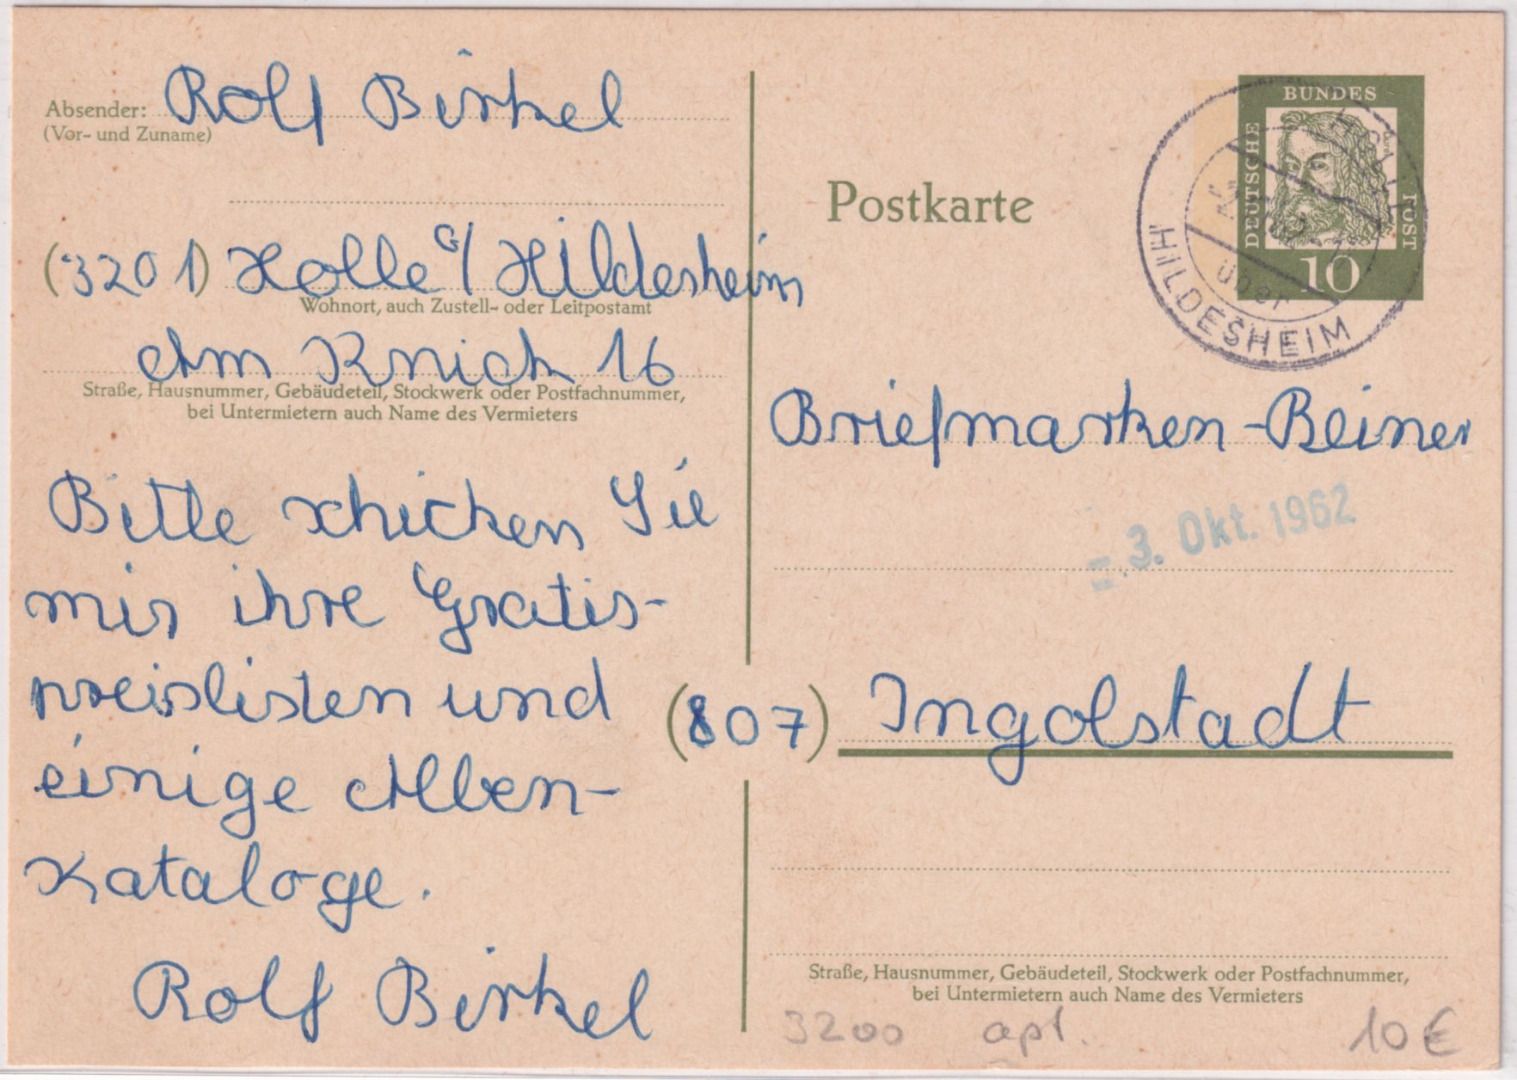 Absender: Rolf Birkel
(Vor- und Zuname)
(3201) Holle ü/ Hildesheim
Wohnort, auch Zustell- oder Leitpostamt
Am Knick 16
Straße, Hausnummer, Gebäudeteil, Stockwerk oder Postfachnummer,
bei Untermietern auch Name des Vermieters
Bitte schicken Sie
mir ihre Gratis-
preislisten und
einige Alben-
Kataloge.
Rolf Birkel
Postkarte
DEUTSCHE BUNDES POST
10
HOLLE
über
HILDESHEIM
Briefmarken-Beiner
3. Okt. 1962
(807) Ingolstadt
Straße, Hausnummer, Gebäudeteil, Stockwerk oder Postfachnummer,
bei Untermietern auch Name des Vermieters
3200 apt. 10€